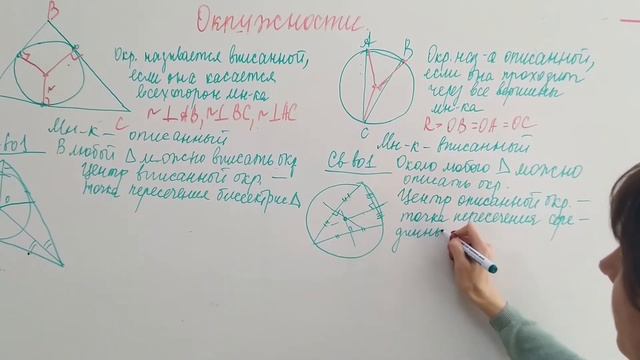 Окружности.
B
Окр. называется вписанной,
если она касается
всех сторон мн-ка
r⊥AB, r⊥BC, r⊥AC
C
Мн-к – описанный
Св-во1
В любой △ можно вписать окр
Центр вписанной окр. –
точка пересечения биссектрис △
O
A
B
C
Окр. наз-а описанной,
если она проходит
через все вершины
мн-ка
R = OB = OA = OC
Мн-к – вписанный
Св-во1
Около любого △ можно
описать окр.
Центр описанной окр. –
точка пересечения сре-
дины